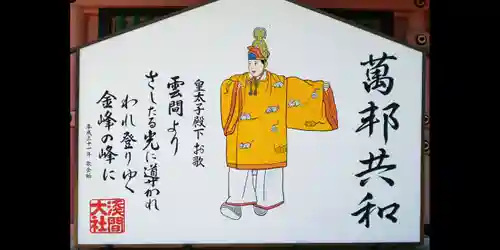 萬邦共和
皇太子殿下お歌
雲間より
さしたる光に導かれ
われ登りゆく
金峰の峰に
平成三十一年 歌会始
浅間
大社